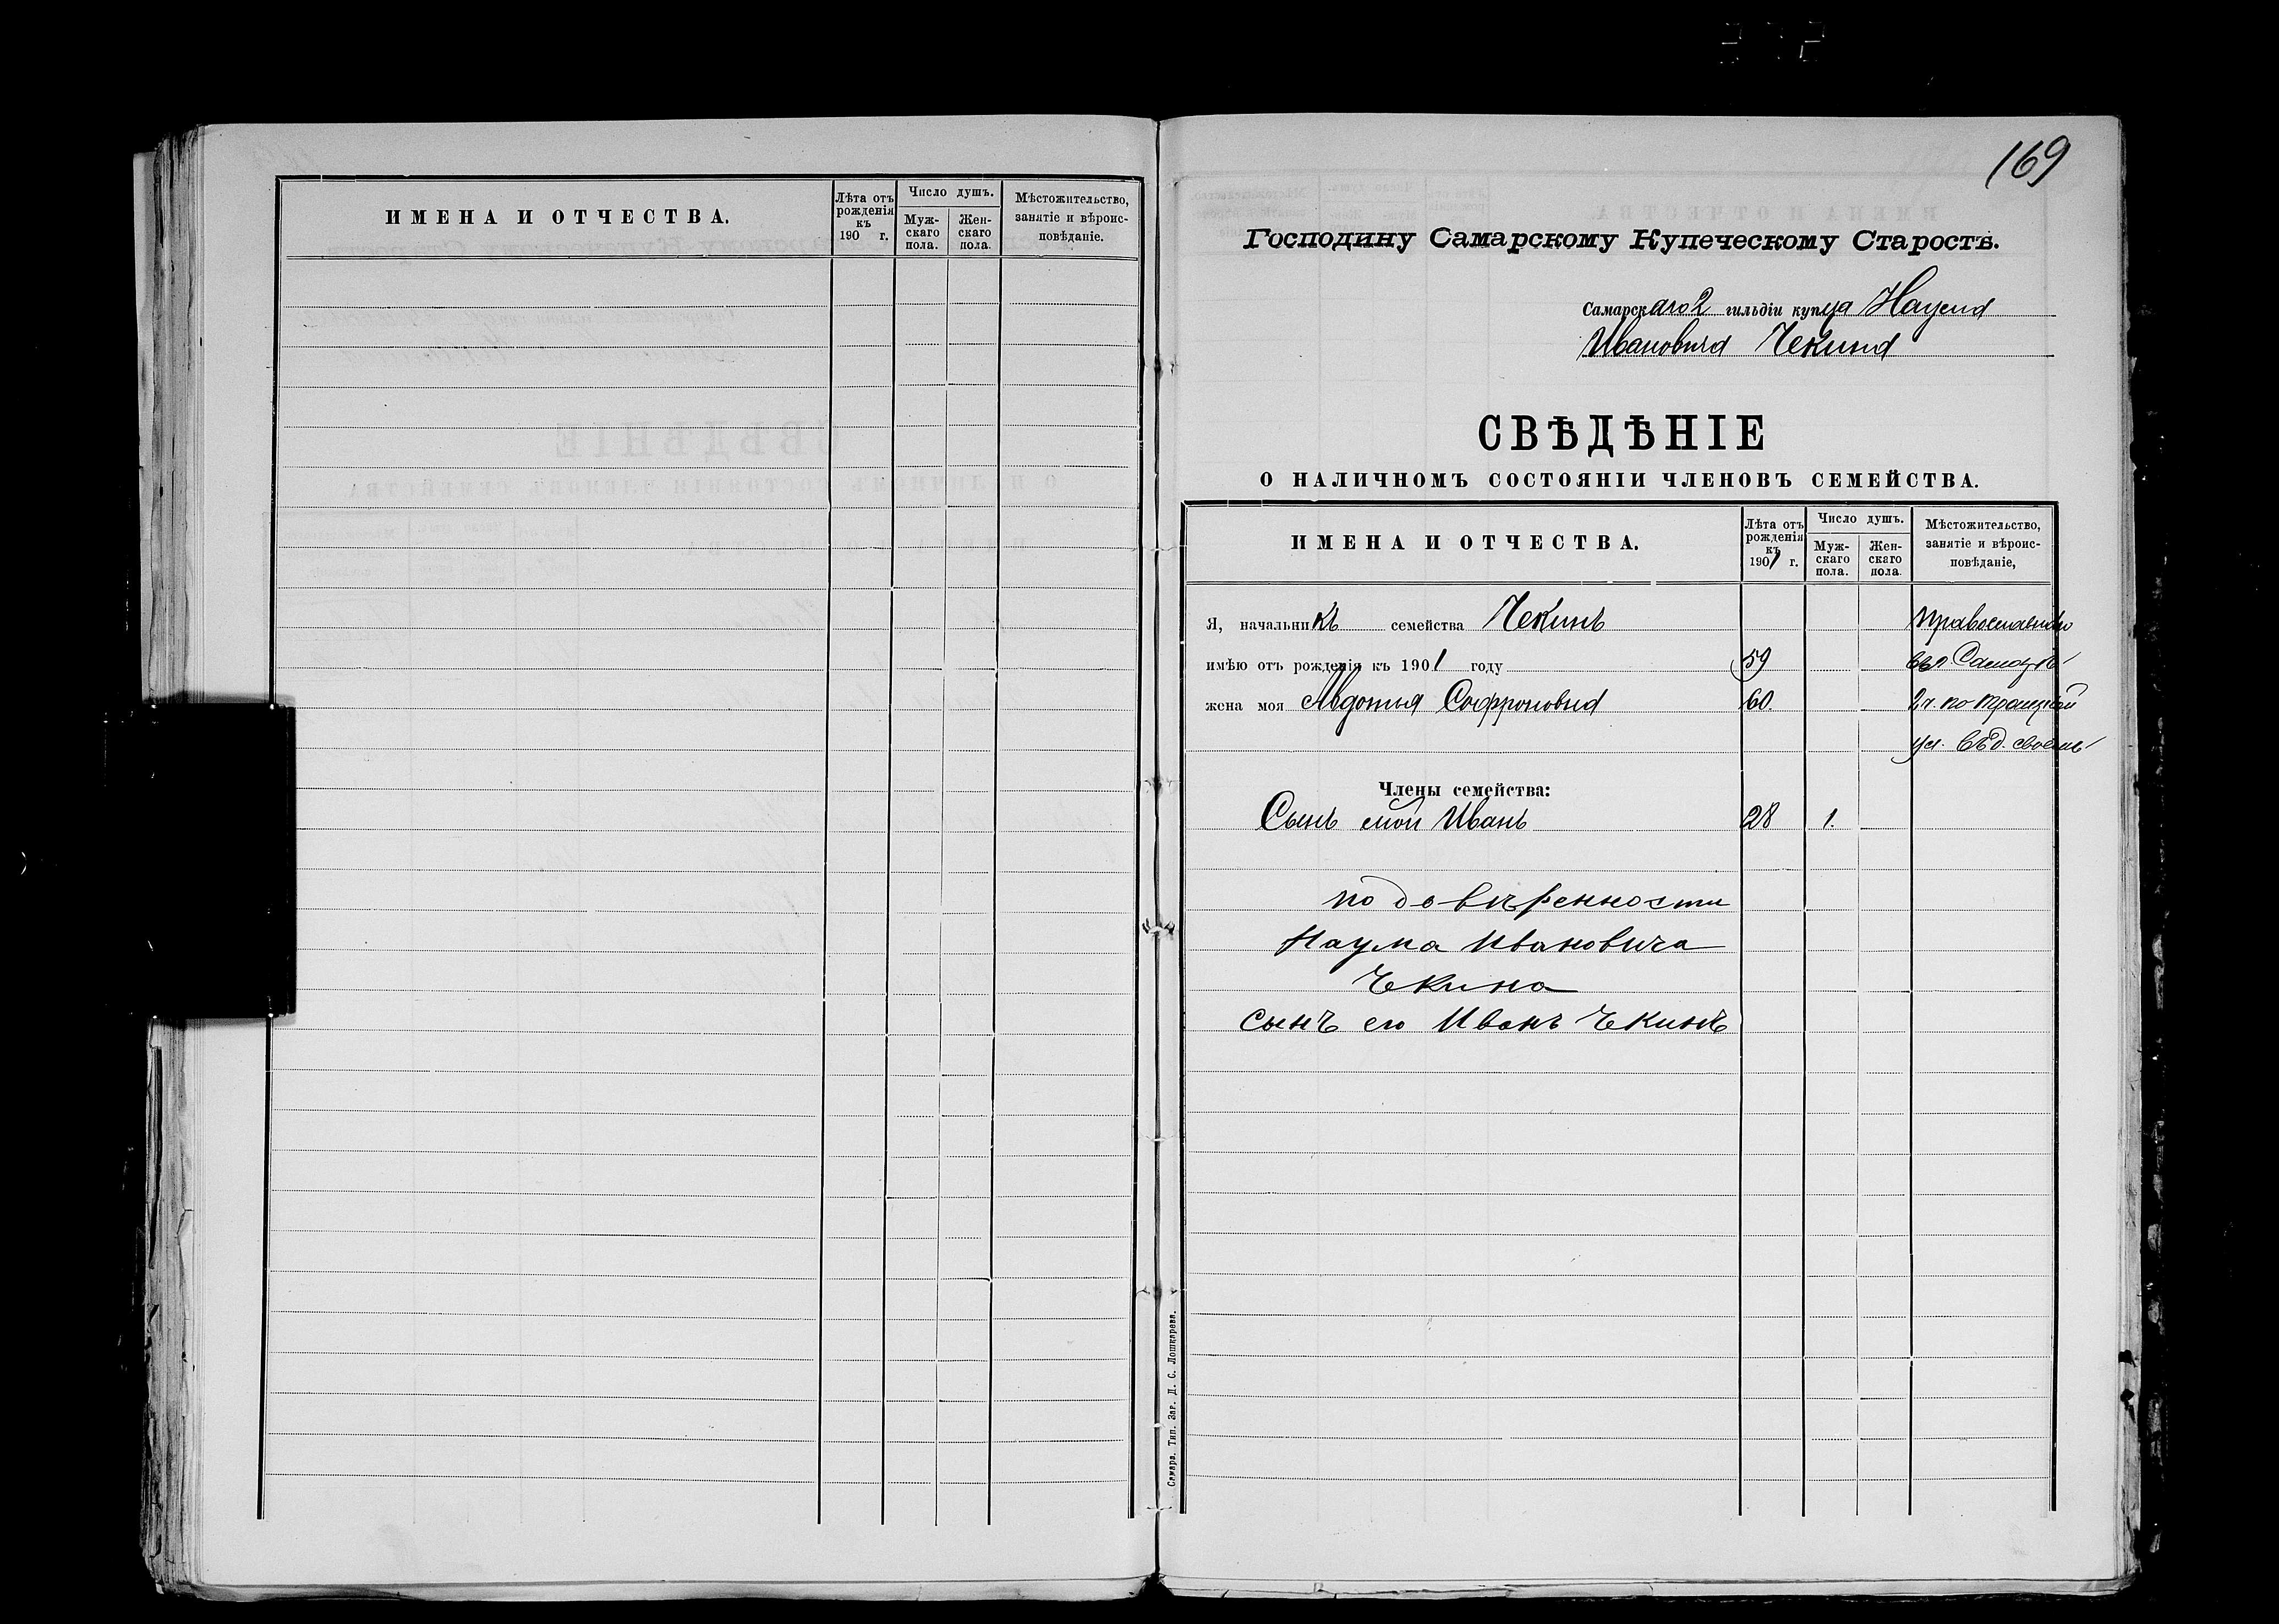 ИМЕНА И ОТЧЕСТВА.
Лѣта отъ рожденія къ 190 г.
Число душъ.
Мужскаго пола.
Женскаго пола.
Мѣстожительство, занятіе и вѣроисповѣданіе.
169
Господину Самарскому Купеческому Старостѣ.
Самарскаго 2 гильдіи купца Наума
Ивановича Чекина
СВѢДѢНІЕ
О НАЛИЧНОМЪ СОСТОЯНІИ ЧЛЕНОВЪ СЕМЕЙСТВА.
ИМЕНА И ОТЧЕСТВА.
Лѣта отъ рожденія къ 1901 г.
Число душъ.
Мужскаго пола.
Женскаго пола.
Мѣстожительство, занятіе и вѣроисповѣданіе,
Я, начальникъ семейства Чекинъ Православнаго
имѣю отъ рожденія къ 1901 году 59 Самарѣ
жена моя Авдотья Софроновна 60. 2 ч. по Троицкой
ул. въ д. своемъ
Члены семейства:
Сынъ мой Иванъ 28 1.
по довѣренности
Наума Ивановича
Чекина
сынъ его Иванъ Чекинъ
Самара. Тип. Заг. Д. С. Лошкарева.